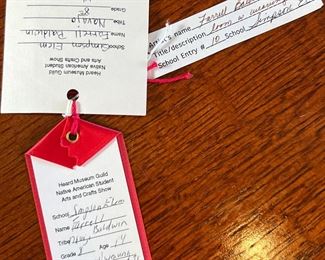 Heard Museum Guild
Native American Student
Arts and Crafts Show
School Simpson Elem
Name Farrell Baldwin
Tribe Navajo
Grade 8
Artist's name Farrell
Title/description loom w weaving
School Entry # 10 School Simpson
Heard Museum Guild
Native American Student
Arts and Crafts Show
School Simpson Elem
Name Farrell
Tribe Navajo Baldwin
Grade 8 Age 14
weaving